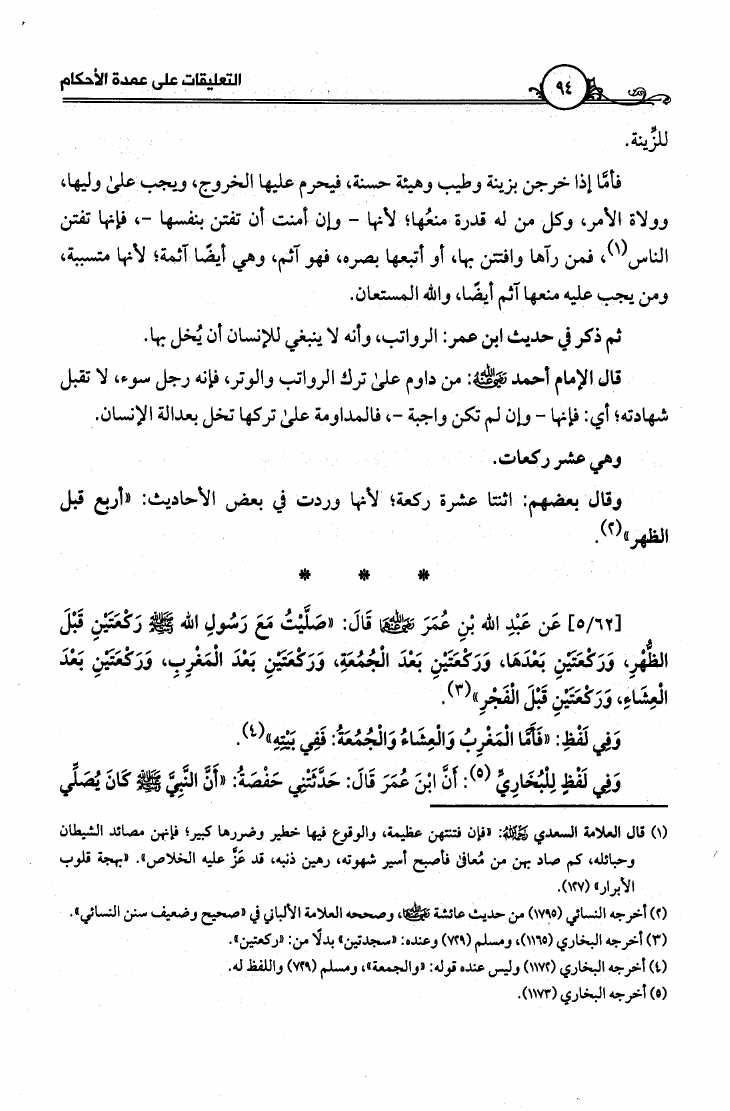 التعليقات على عمدة الأحكام
٩٤
للزِّينة.
فأمَّا إذا خرجن بزينة وطيب وهيئة حسنة، فيحرم عليها الخروج، ويجب علىٰ وليها،
وولاة الأمر، وكل من له قدرة منعُها؛ لأنها – وإن أمنت أن تفتن بنفسها –، فإنها تفتن
الناس(١)، فمن رآها وافتتن بها، أو أتبعها بصره، فهو آثم، وهي أيضًا آثمة؛ لأنها متسببة،
ومن يجب عليه منعها آثم أيضًا، والله المستعان.
ثم ذكر في حديث ابن عمر: الرواتب، وأنه لا ينبغي للإنسان أن يُخل بها.
قال الإمام أحمد رَحِمَهُ ٱللَّهُ: من داوم علىٰ ترك الرواتب والوتر، فإنه رجل سوء، لا تقبل
شهادته؛ أي: فإنها – وإن لم تكن واجبة –، فالمداومة علىٰ تركها تخل بعدالة الإنسان.
وهي عشر ركعات.
وقال بعضهم: اثنتا عشرة ركعة؛ لأنها وردت في بعض الأحاديث: «أربع قبل
الظهر»(٢).
* * *
[٥/٦٢] عَن عَبْدِ الله بْنِ عُمَرَ رَضِيَ ٱللَّهُ عَنْهُمَا قَالَ: «صَلَّيْتُ مَعَ رَسُولِ الله ﷺ رَكْعَتَيْنِ قَبْلَ
الظُّهْرِ، وَرَكْعَتَيْنِ بَعْدَهَا، وَرَكْعَتَيْنِ بَعْدَ الْجُمُعَةِ، وَرَكْعَتَيْنِ بَعْدَ الْمَغْرِبِ، وَرَكْعَتَيْنِ بَعْدَ
الْعِشَاءِ، وَرَكْعَتَيْنِ قَبْلَ الْفَجْرِ»(٣).
وَفِي لَفْظِ: «فَأَمَّا الْمَغْرِبُ وَالْعِشَاءُ وَالْجُمُعَةُ: فَفِي بَيْتِهِ»(٤).
وَفِي لَفْظٍ لِلْبُخَارِيِّ(٥): أَنَّ ابْنَ عُمَرَ قَالَ: حَدَّثَتْنِي حَفْصَةُ: «أَنَّ النَّبِيَّ ﷺ كَانَ يُصَلِّي
(١) قال العلامة السعدي رَحِمَهُ ٱللَّهُ: «فإن فتنتهن عظيمة، والوقوع فيها خطير وضررها كبير؛ فإنهن مصائد الشيطان
وحبائله، كم صاد بهن من مُعافىٰ فأصبح أسير شهوته، رهين ذنبه، قد عَزَّ عليه الخلاص». «بهجة قلوب
الأبرار» (١٢٧).
(٢) أخرجه النسائي (١٧٩٥) من حديث عائشة رَضِيَ ٱللَّهُ عَنْهَا، وصححه العلامة الألباني في «صحيح وضعيف سنن النسائي».
(٣) أخرجه البخاري (١١٦٥)، ومسلم (٧٢٩) وعنده: «سجدتين» بدلًا من: «ركعتين».
(٤) أخرجه البخاري (١١٧٢) وليس عنده قوله: «والجمعة»، ومسلم (٧٢٩) واللفظ له.
(٥) أخرجه البخاري (١١٧٣).